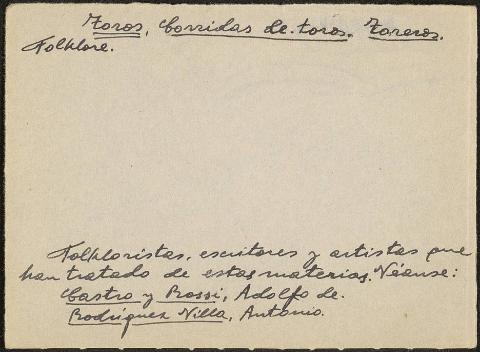 Toros, Corridas de toros. Toreros.
Folklore.
Folkloristas, escritores y artistas que
han tratado de estas materias. Véanse:
Castro y Rossi, Adolfo de.
Rodríguez Villa, Antonio.